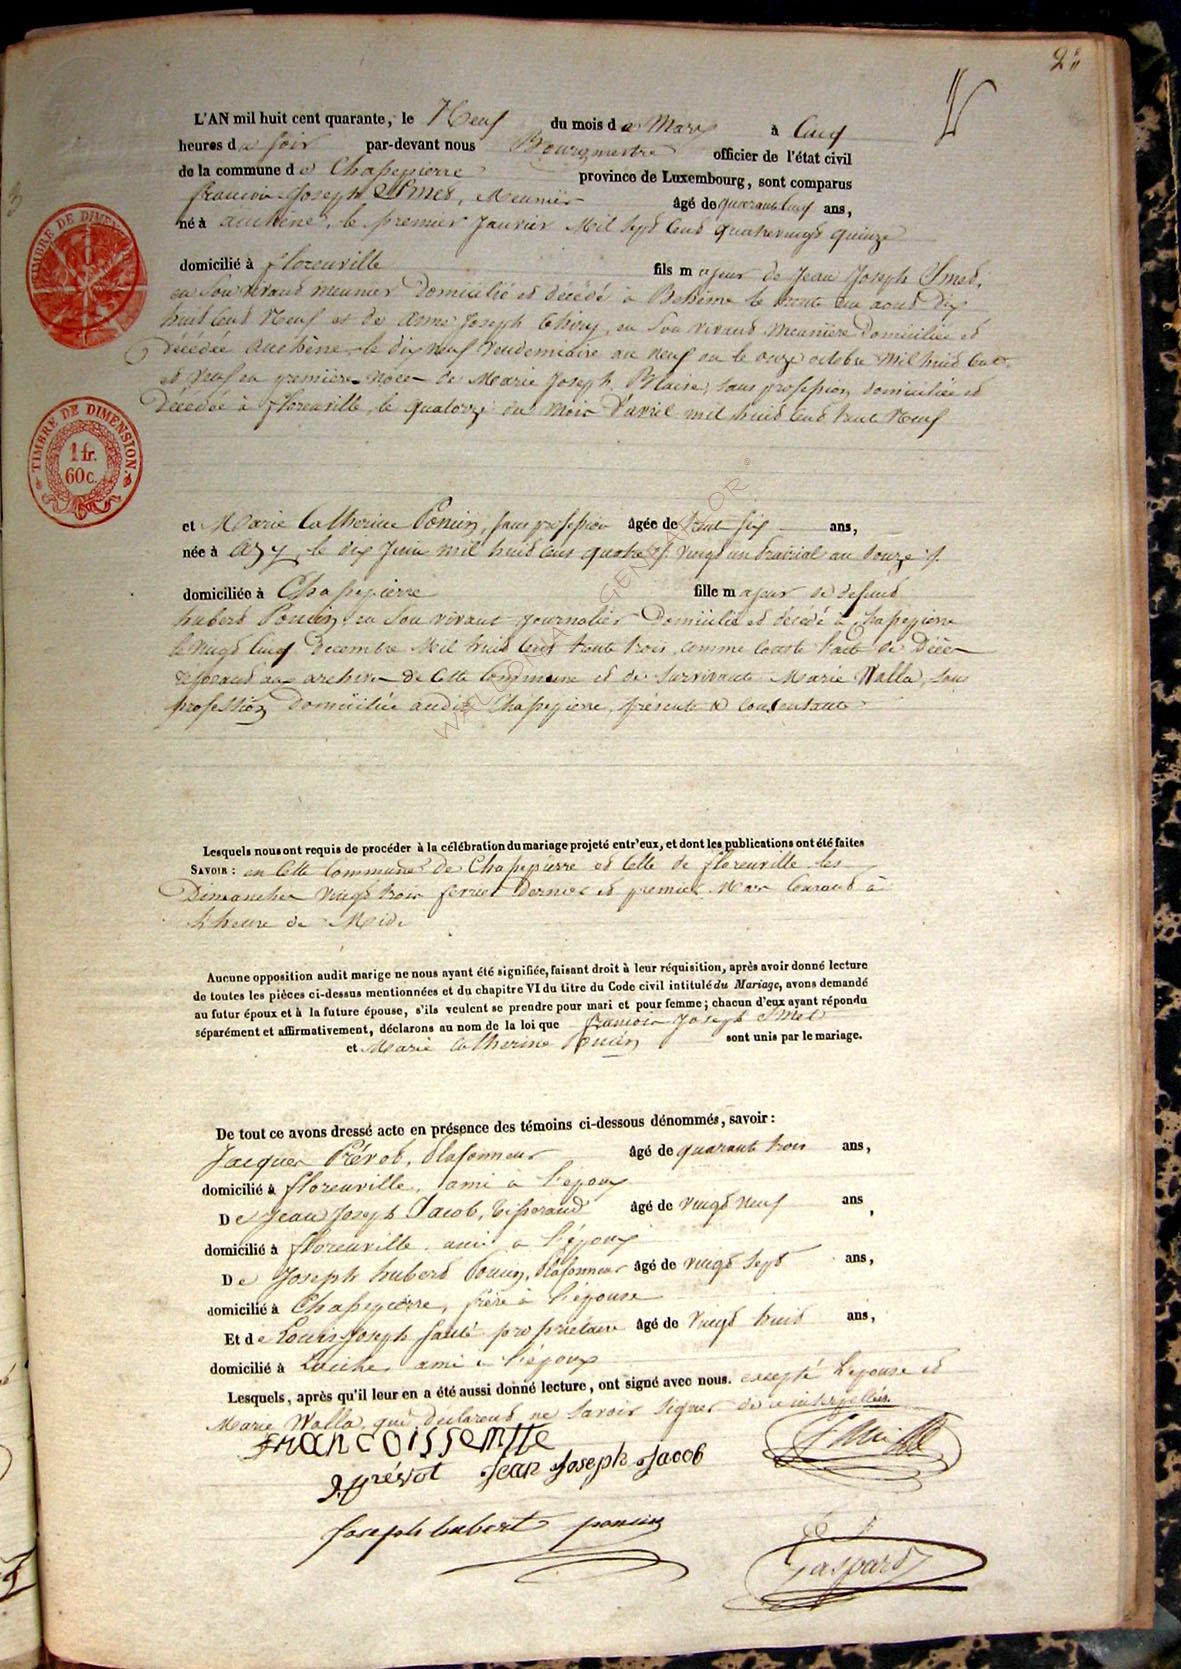 2
L'AN mil huit cent quarante, le Neuf du mois de Mars à Cinq
heures du soir par-devant nous Bourgmestre officier de l'état civil
de la commune de Chassepierre province de Luxembourg, sont comparus
francois Joseph Smet, Meunier âgé de quarante cinq ans,
né à auchène, le premier Janvier Mil Sept Cent quatrevingt quinze
domicilié à florenville fils majeur de Jean Joseph Smed,
en son vivant meunier Domicilié et décédé à le trente un aout dix
huit Cent Neuf et de anne Joseph thiry, en Son vivant Meunière Domiciliée et
décédée auchène le dix neuf Vendemiaire an neuf ou le onze octobre Mil huit Cent
et Veuf en première Noce de Marie Joseph Blaise, Sans profession domiciliée et
Décédée à florenville, le quatorze du Mois d'avril mil huit Cent trente Neuf
TIMBRE DE DIMENSION
TIMBRE DE DIMENSION
1 fr.
60 c.
et Marie Catherine Poncin, Sans profession âgée de trente six ans,
née à azy, le dix Juin mil huit Cent quatre / Vingt un Prairial an Douze /.
domiciliée à Chassepierre fille majeur de defunt
hubert Poncin, en Son vivant Journalier Domicilié et décédé à Chassepierre
le Vingt Cinq Decembre Mil huit Cent trente trois, comme Conste l'acte de Décès
reposant aux archives de Cette Commune et de Survivante Marie Walla, Sans
profession Domiciliée audit Chassepierre, présente & Consentante
WALLONIA GENEALOR ©
Lesquels nous ont requis de procéder à la célébration du mariage projeté entr'eux, et dont les publications ont été faites
SAVOIR : en Cette Commune de Chassepierre et Celle de florenville les
Dimanches Vingt trois fevrier Dernier et premier Mars Courant à
l'heure de Midi
Aucune opposition audit marige ne nous ayant été signifiée, faisant droit à leur réquisition, après avoir donné lecture
de toutes les pièces ci-dessus mentionnées et du chapitre VI du titre du Code civil intitulé du Mariage, avons demandé
au futur époux et à la future épouse, s'ils veulent se prendre pour mari et pour femme ; chacun d'eux ayant répondu
séparément et affirmativement, déclarons au nom de la loi que francois Joseph Smet
et Marie Catherine Poncin sont unis par le mariage.
De tout ce avons dressé acte en présence des témoins ci-dessous dénommés, savoir :
Jacques Prévot, Plafonneur âgé de quarante trois ans,
domicilié à florenville, ami à l'epoux
De Jean Joseph Jacob, Tisserand âgé de vingt neuf ans,
domicilié à florenville, ami à l'époux
De Joseph hubert Poncin, Plafonneur âgé de vingt sept ans,
domicilié à Chassepierre, frère à l'épouse
Et de Louis Joseph propriétaire âgé de vingt huit ans,
domicilié à ami à l'époux
Lesquels, après qu'il leur en a été aussi donné lecture, ont signé avec nous. excepté l'epouse et
Marie Walla, qui declarent ne Savoir Signer de ce interpellées.
francoissemtte
J. prévot Jean Joseph Jacob
Joseph hubert poncin
Gaspard